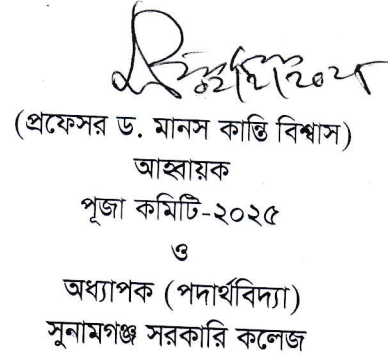 (প্রফেসর ড. মানস কান্তি বিশ্বাস)
আহ্বায়ক
পূজা কমিটি-২০২৫
ও
অধ্যাপক (পদার্থবিদ্যা)
সুনামগঞ্জ সরকারি কলেজ